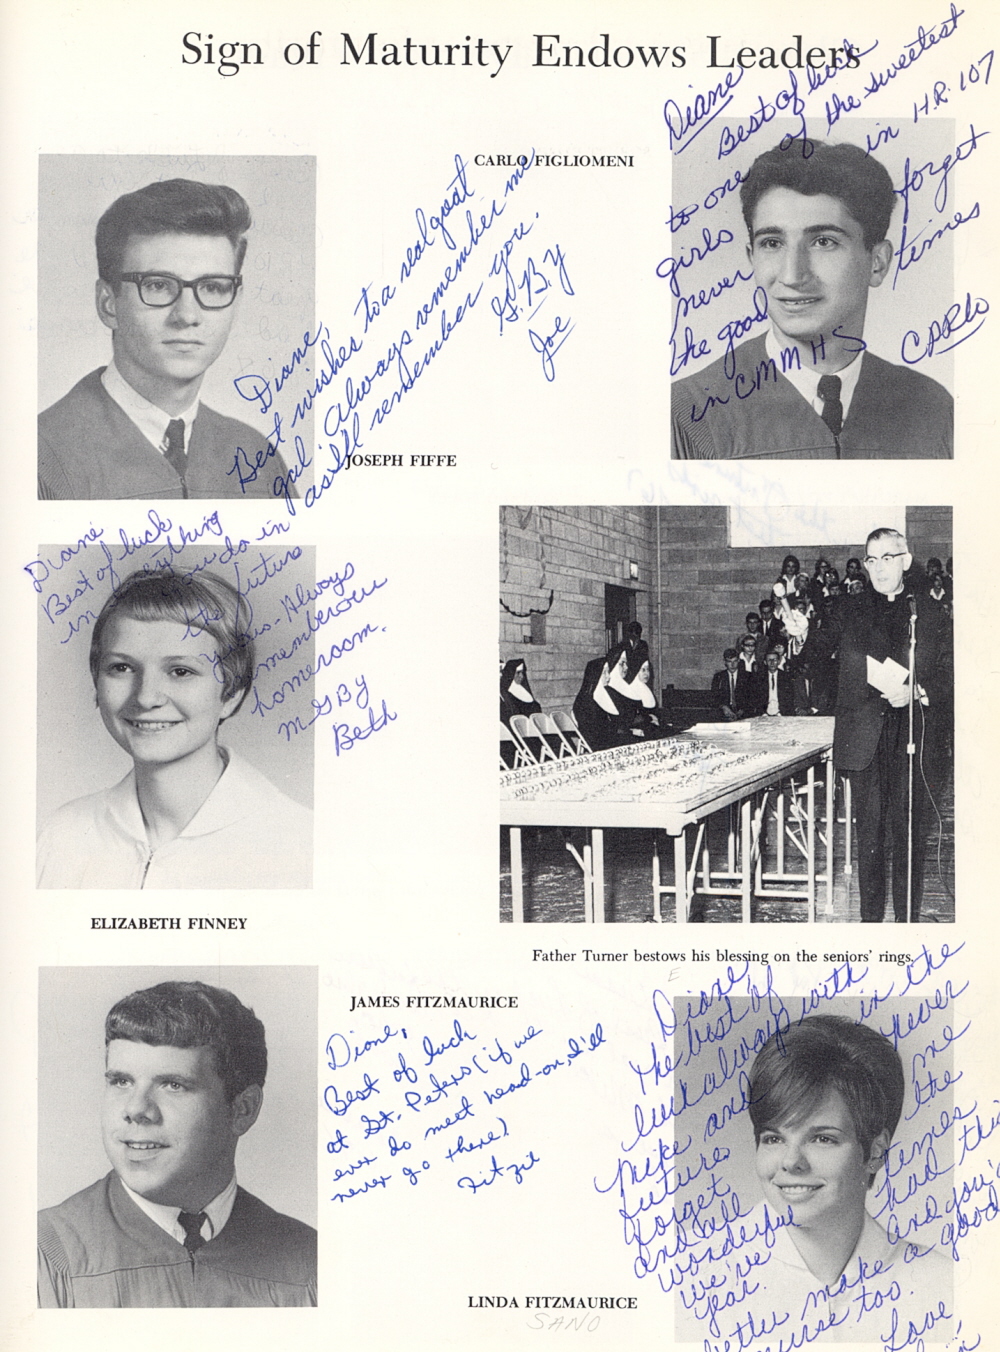 Sign of Maturity Endows Leaders
CARLO FIGLIOMENI
Diane
Best of luck
to one of the sweetest
girls in H.R. 107
never forget
the good times
in CMMHS
CARLO
Diane,
Best wishes to a real great
gal. Always remember me
as I'll remember you.
G.B.Y
Joe
JOSEPH FIFFE
Diane
Best of luck
in everything
you do in
the future
years. Always
remember our
homeroom.
MGBY
Beth
ELIZABETH FINNEY
Father Turner bestows his blessing on the seniors' rings.
JAMES FITZMAURICE
Diane,
Best of luck
at St. Peters (if we
ever do meet head-on, I'll
never go there)
Fitzie
E
Diane,
The best of
luck always with
Mike and in the
future. Never
forget me
and all the
wonderful times
we've had this
year. And you'd
better make a good
nurse too.
Love,
LINDA FITZMAURICE
SANO